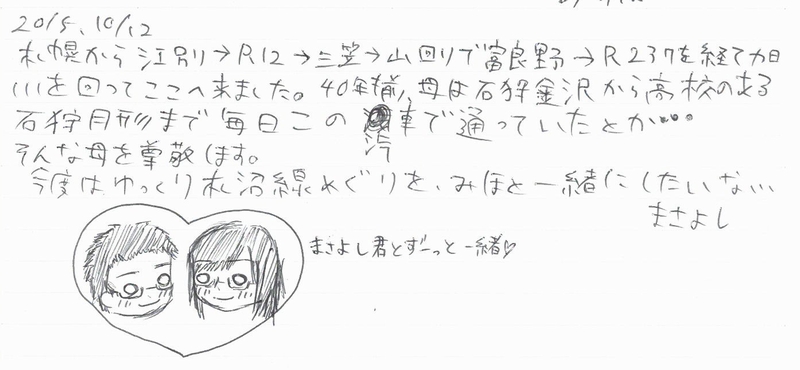 2015.10/12
札幌から江別→R12→三笠→山回りで富良野→R237を経て旭
川を回ってここへ来ました。40年前、母は石狩金沢から高校のある
石狩月形まで毎日この汽車で通っていたとか…
そんな母を尊敬します。
今度はゆっくり札沼線めぐりを、みほと一緒にしたいな…
まさよし
まさよし君とずーっと一緒♡